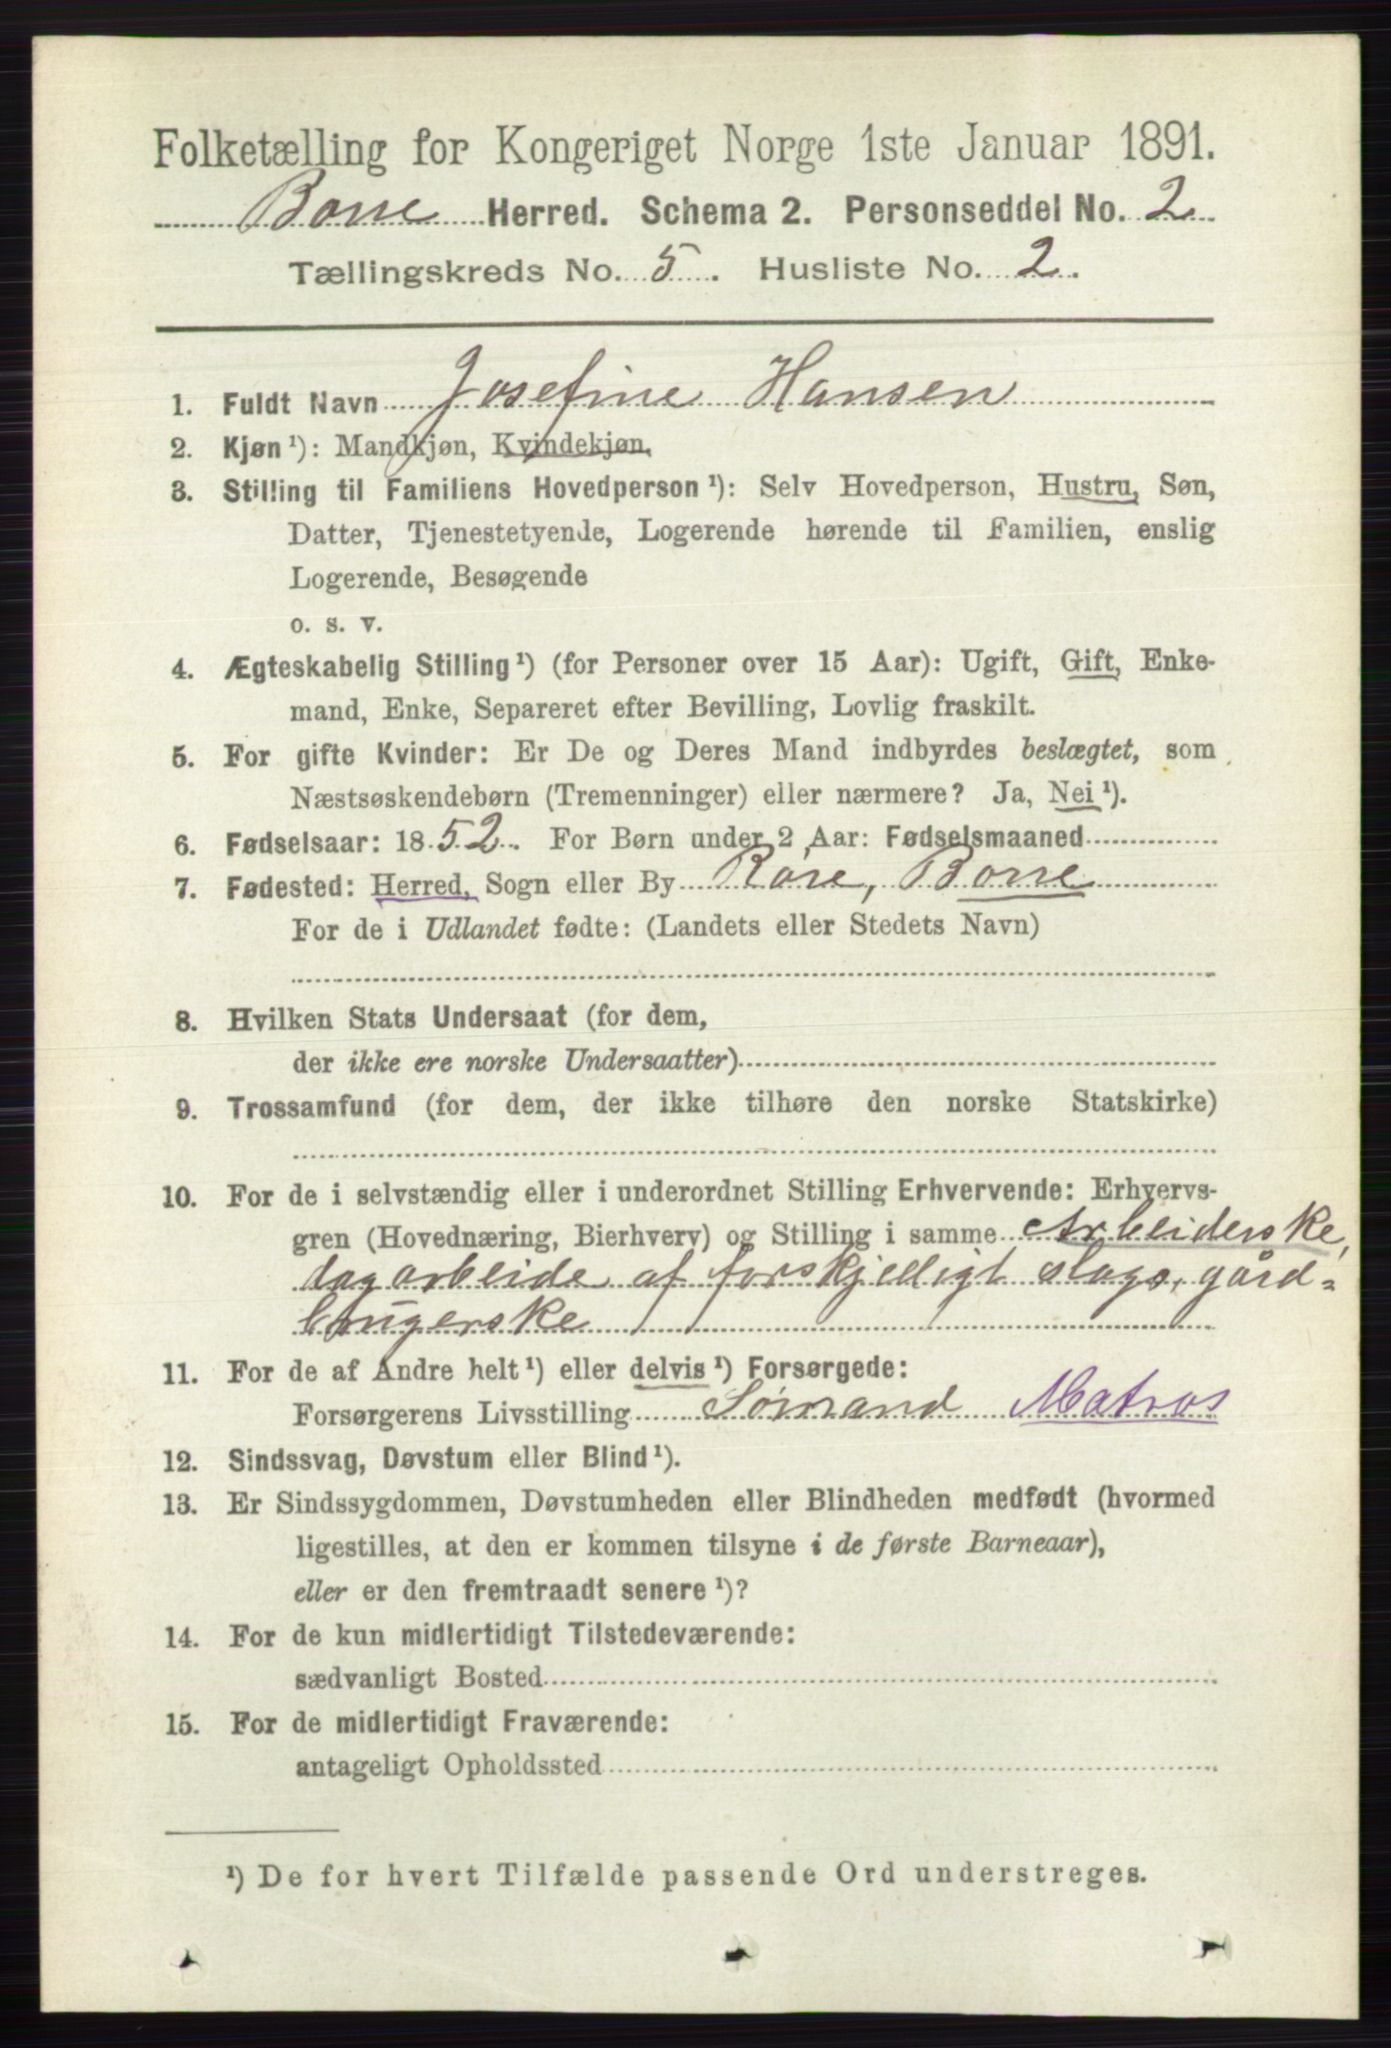 Folketælling for Kongeriget Norge 1ste Januar 1891.
Borre Herred. Schema 2. Personseddel No. 2
Tællingskreds No. 5. Husliste No. 2.
1. Fuldt Navn Josefine Hansen
2. Kjøn ¹): Mandkjøn, Kvindekjøn.
3. Stilling til Familiens Hovedperson ¹): Selv Hovedperson, Hustru, Søn,
Datter, Tjenestetyende, Logerende hørende til Familien, enslig
Logerende, Besøgende
o. s. v.
4. Ægteskabelig Stilling ¹) (for Personer over 15 Aar): Ugift, Gift, Enke-
mand, Enke, Separeret efter Bevilling, Lovlig fraskilt.
5. For gifte Kvinder: Er De og Deres Mand indbyrdes beslægtet, som
Næstsøskendebørn (Tremenninger) eller nærmere? Ja, Nei ¹).
6. Fødselsaar: 1852. For Børn under 2 Aar: Fødselsmaaned
7. Fødested: Herred, Sogn eller By Røre, Borre
For de i Udlandet fødte: (Landets eller Stedets Navn)
8. Hvilken Stats Undersaat (for dem,
der ikke ere norske Undersaatter)
9. Trossamfund (for dem, der ikke tilhøre den norske Statskirke)
10. For de i selvstændig eller i underordnet Stilling Erhvervende: Erhvervs-
gren (Hovednæring, Bierhverv) og Stilling i samme Arbeiderske,
dagarbeide af forskjelligt slags, gård=
brugerske
11. For de af Andre helt ¹) eller delvis ¹) Forsørgede:
Forsørgerens Livsstilling Sömand Matros
12. Sindssvag, Døvstum eller Blind ¹).
13. Er Sindssygdommen, Døvstumheden eller Blindheden medfødt (hvormed
ligestilles, at den er kommen tilsyne i de første Barneaar),
eller er den fremtraadt senere ¹)?
14. For de kun midlertidigt Tilstedeværende:
sædvanligt Bosted
15. For de midlertidigt Fraværende:
antageligt Opholdssted
¹) De for hvert Tilfælde passende Ord understreges.